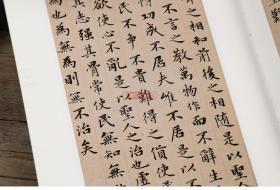 之相和前後之相隨是以聖
不言之教萬物作而不辭生
功成不居夫惟不居是以
民不爭不貴難得之貨使民
使心不亂是以聖人之治也虛
其志強其骨常使民無知無
為也為無為則無不治矣